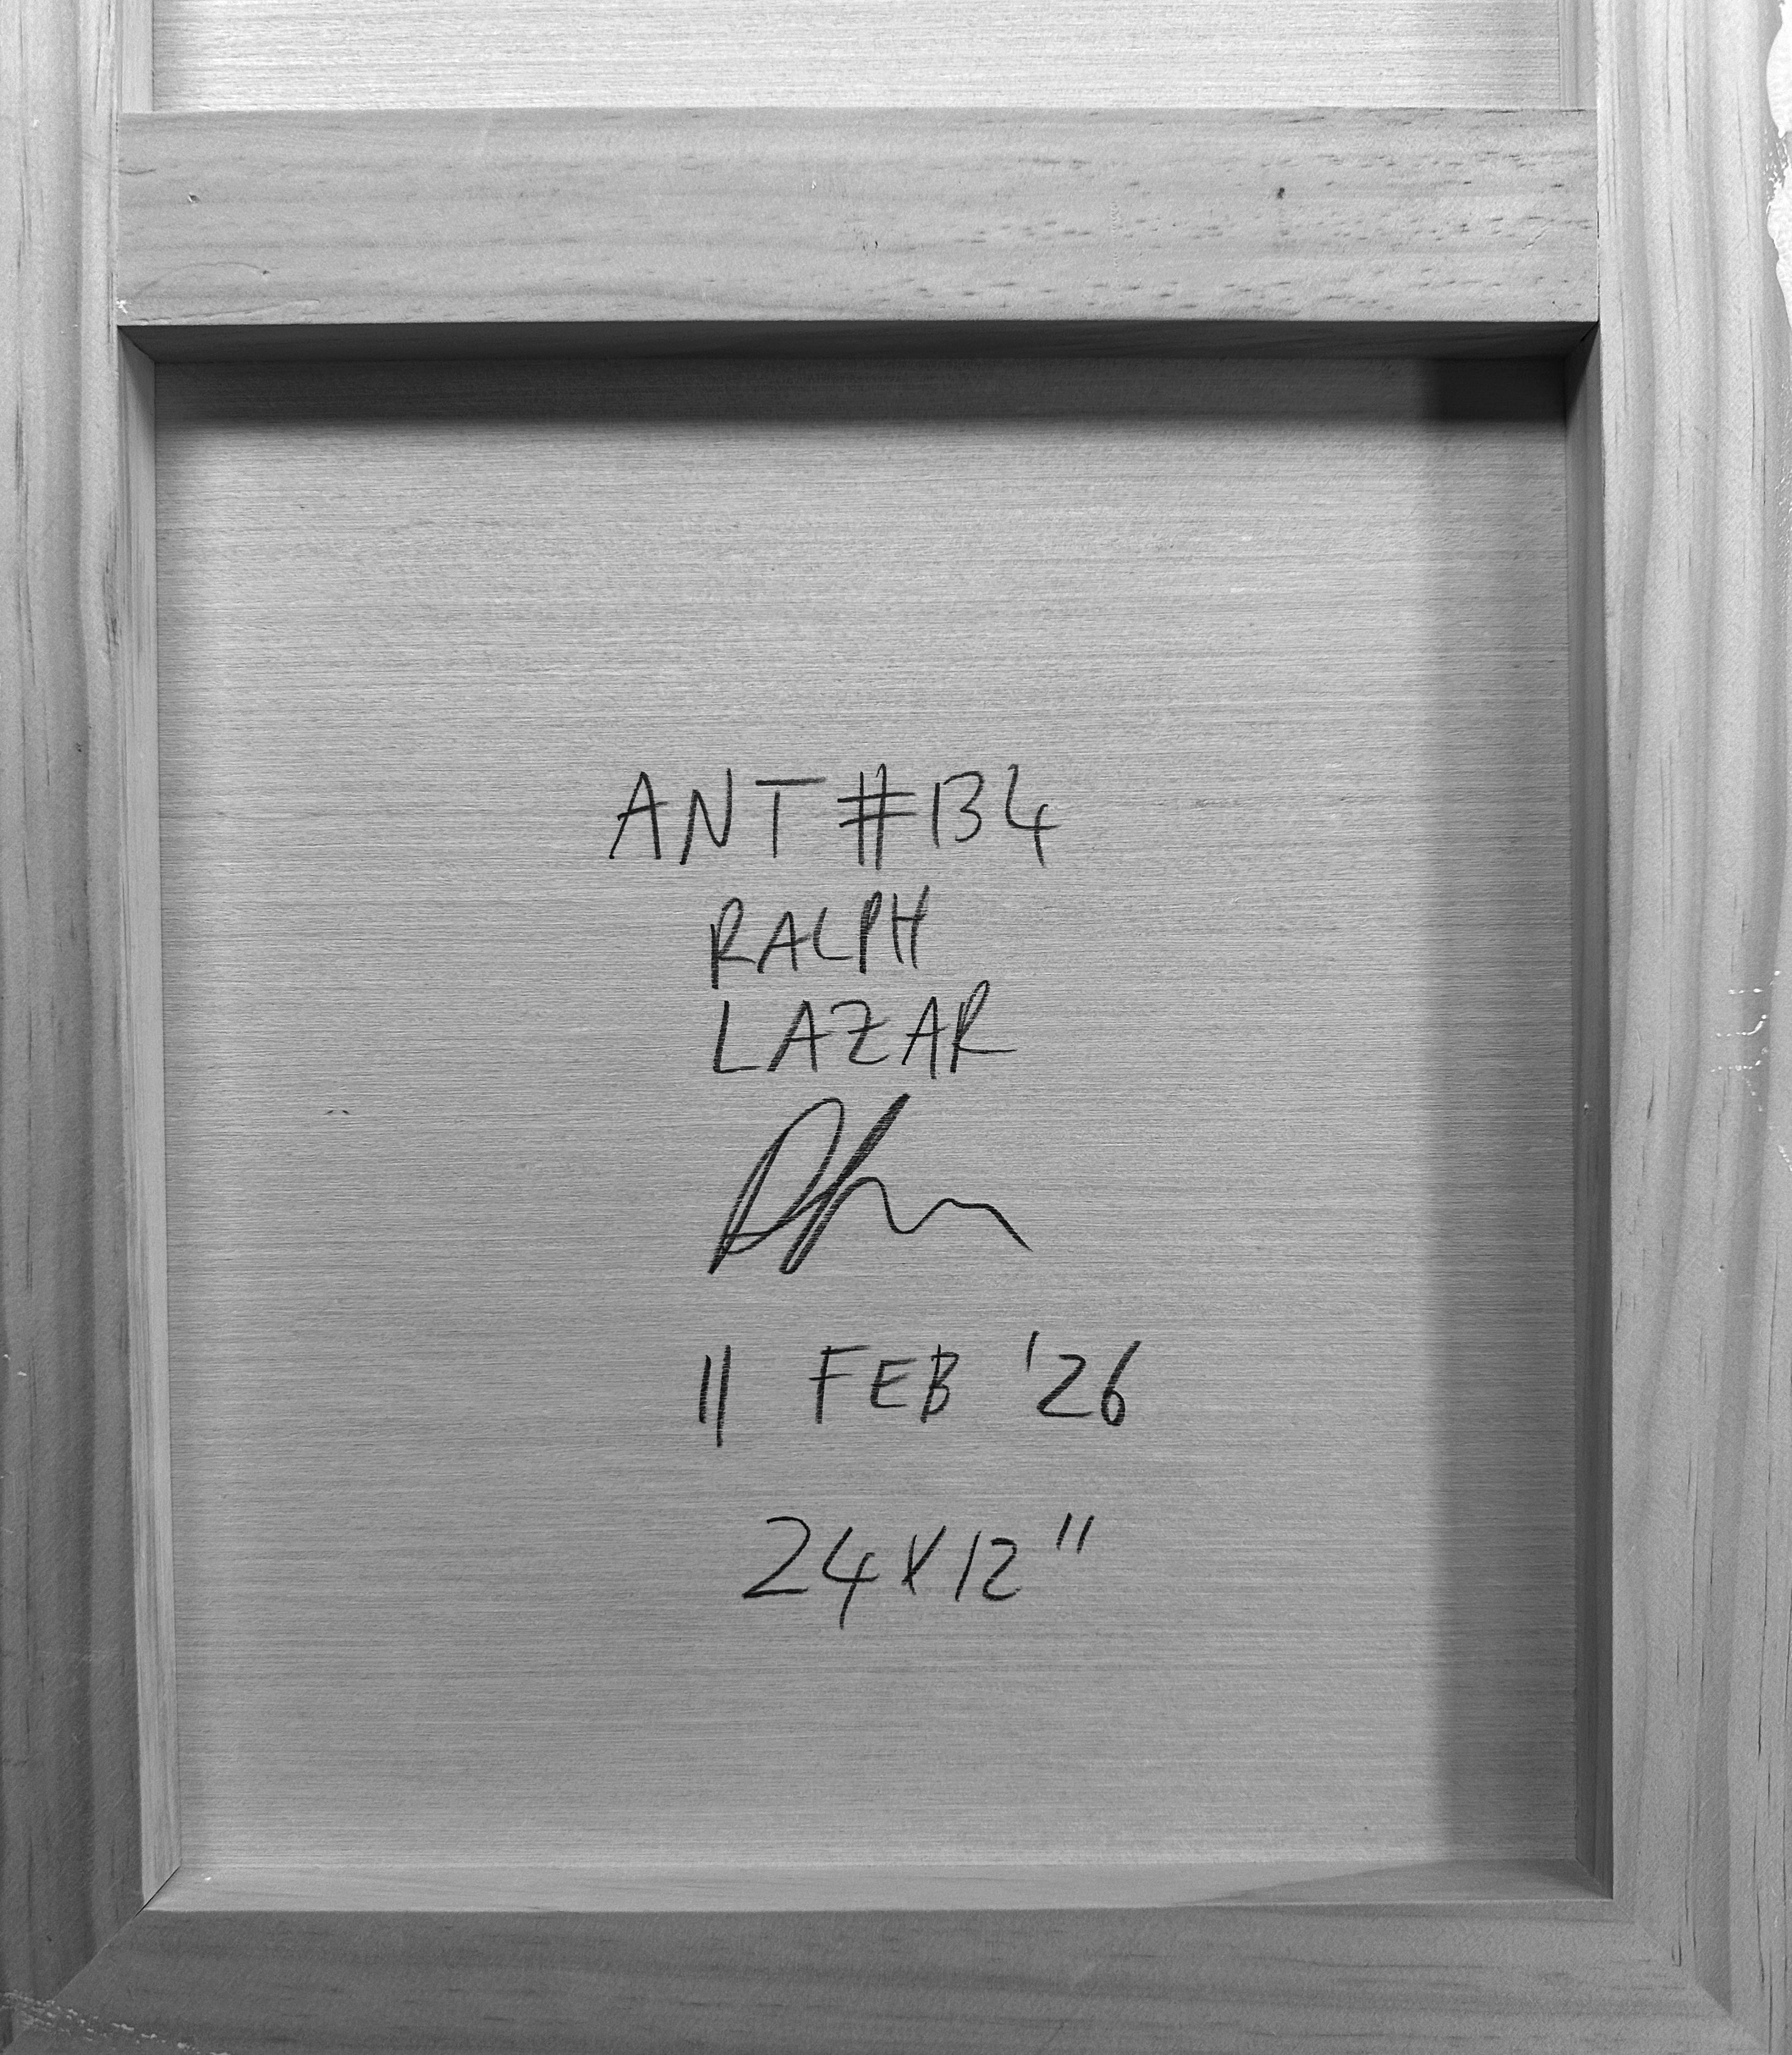 ANT #134
RALPH
LAZAR
11 FEB '26
24x12"